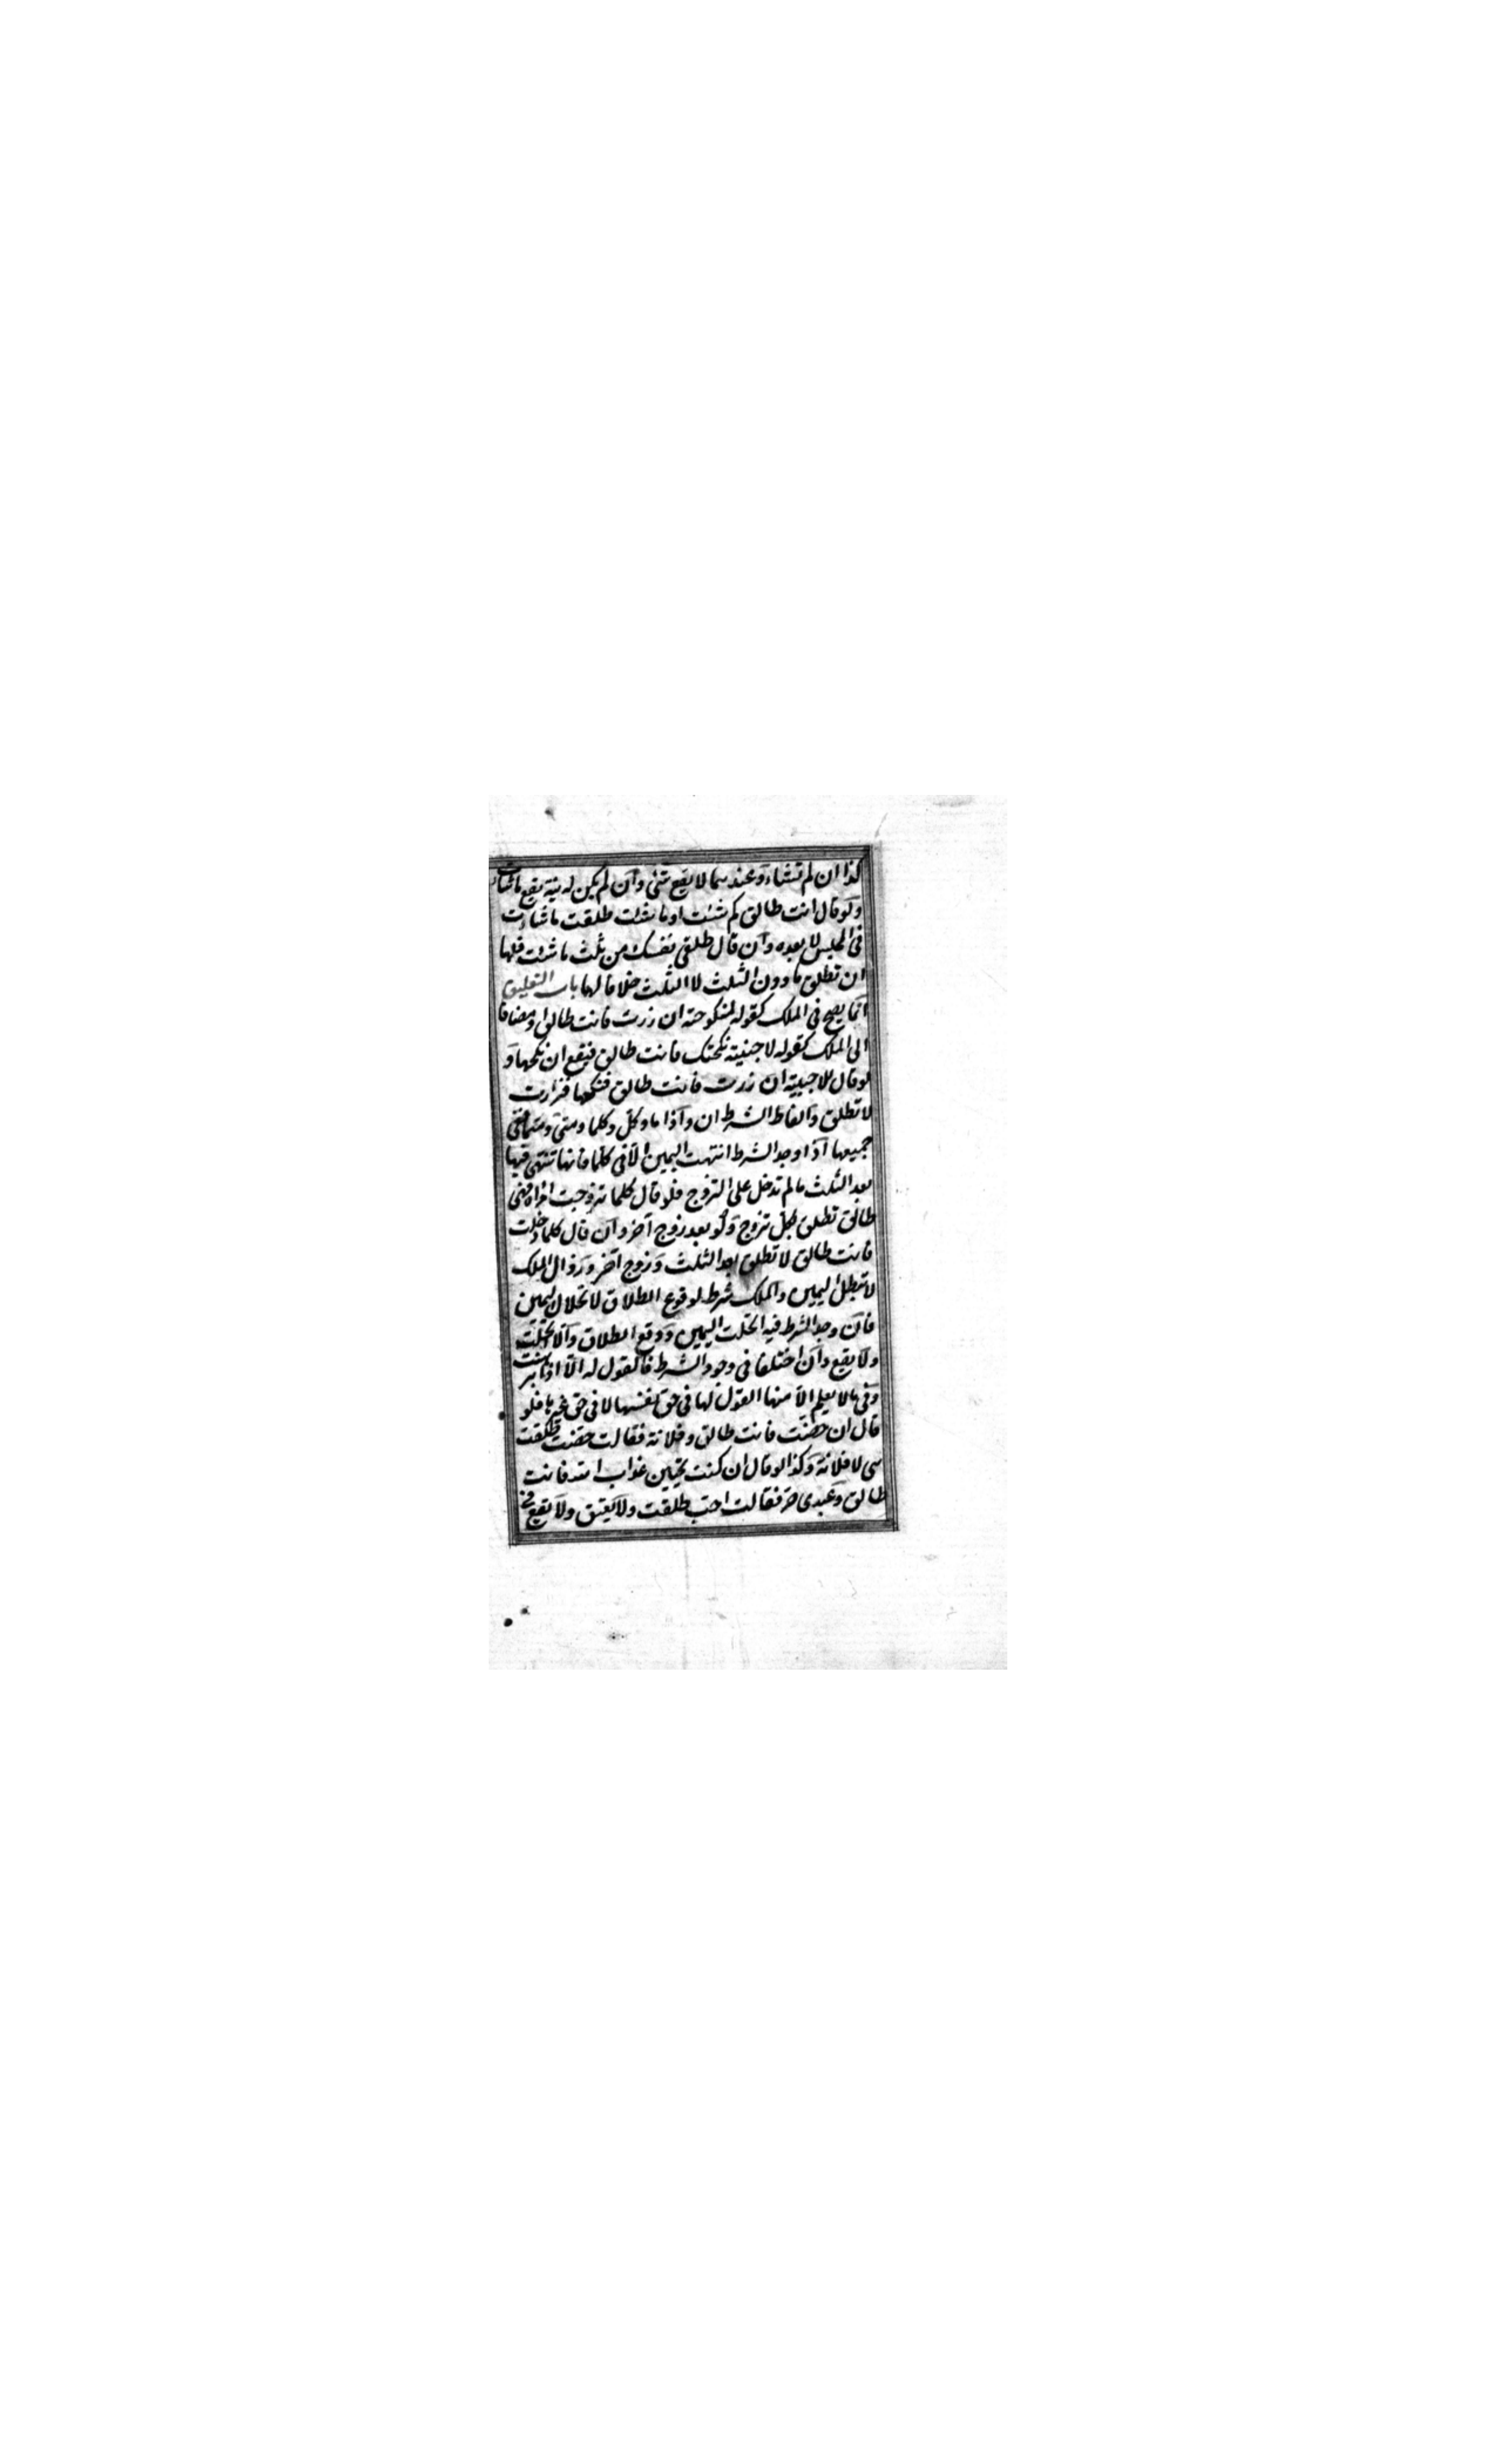 كذا ان لم تشاء وعندهما لا يقع شئ وان لم يكن له نية يقع ما شاءت
ولو قال انت طالق كم شئت او ما شئت طلقت ما شاءت
فى المجلس لا بعده وان قال طلقى نفسك من ثلث ما شئت فلها
ان تطلق ما دون الثلث لا الثلث خلافا لهما باب التعليق
انما يصح فى الملك كقوله لمنكوحته ان زرت فانت طالق او مضافا
الى الملك كقوله لاجنبية نكحتك فانت طالق فيقع ان نكحها و
لو قال للاجنبية ان زرت فانت طالق فنكحها فزارت
لا تطلق والفاظ الشرط ان واذا ما وكل وكلما ومتى ومتما ففى
جميعها اذا وجد الشرط انتهت اليمين الا فى كلما فانها تنتهى فيها
بعد الثلث ما لم تدخل على التزوج فلو قال كلما تزوجت امراة فهى
طالق تطلق بكل تزوج ولو بعد زوج آخر وان قال كلما دخلت
فانت طالق لا تطلق بعد الثلث وزوج آخر وزوال الملك
لا تبطل اليمين والملك شرط لوقوع الطلاق لا تحلال اليمين
فان وجد الشرط فيه انحلت اليمين ووقع الطلاق والا انحلت
ولا يقع وان اختلفا فى وجود الشرط فالقول له الا اذا برهنت
وفى ما لا يعلم الا منها القول لها فى حق نفسها لا فى حق غيرها فلو
قال ان حضت فانت طالق وفلانة فقالت حضت طلقت
هى لا فلانة وكذا لو قال ان كنت تحبين عذاب الله فانت
طالق وعبدى حر فقالت احب طلقت ولا يعتق ولا يقع فى